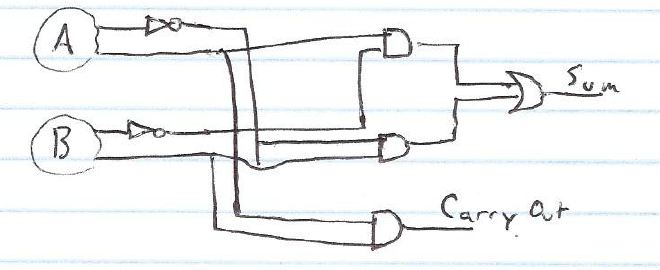 A
Sum
B
Carry Out